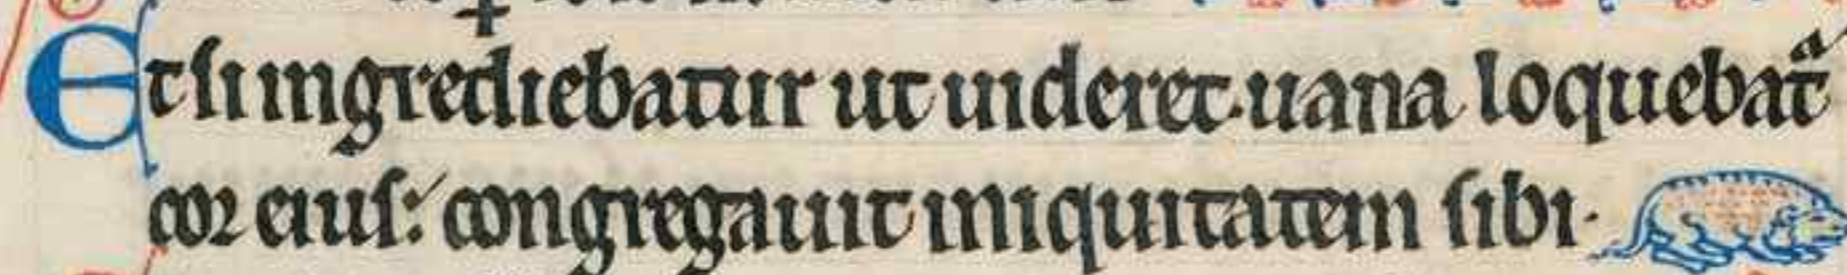 Et si ingrediebatur ut uideret·uana loquebat᷑
cor eius: congregauit iniquitatem sibi·